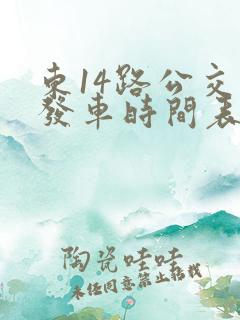 東14路公交
發車時間表
陶瓷哇哇
未经同意禁止搭载